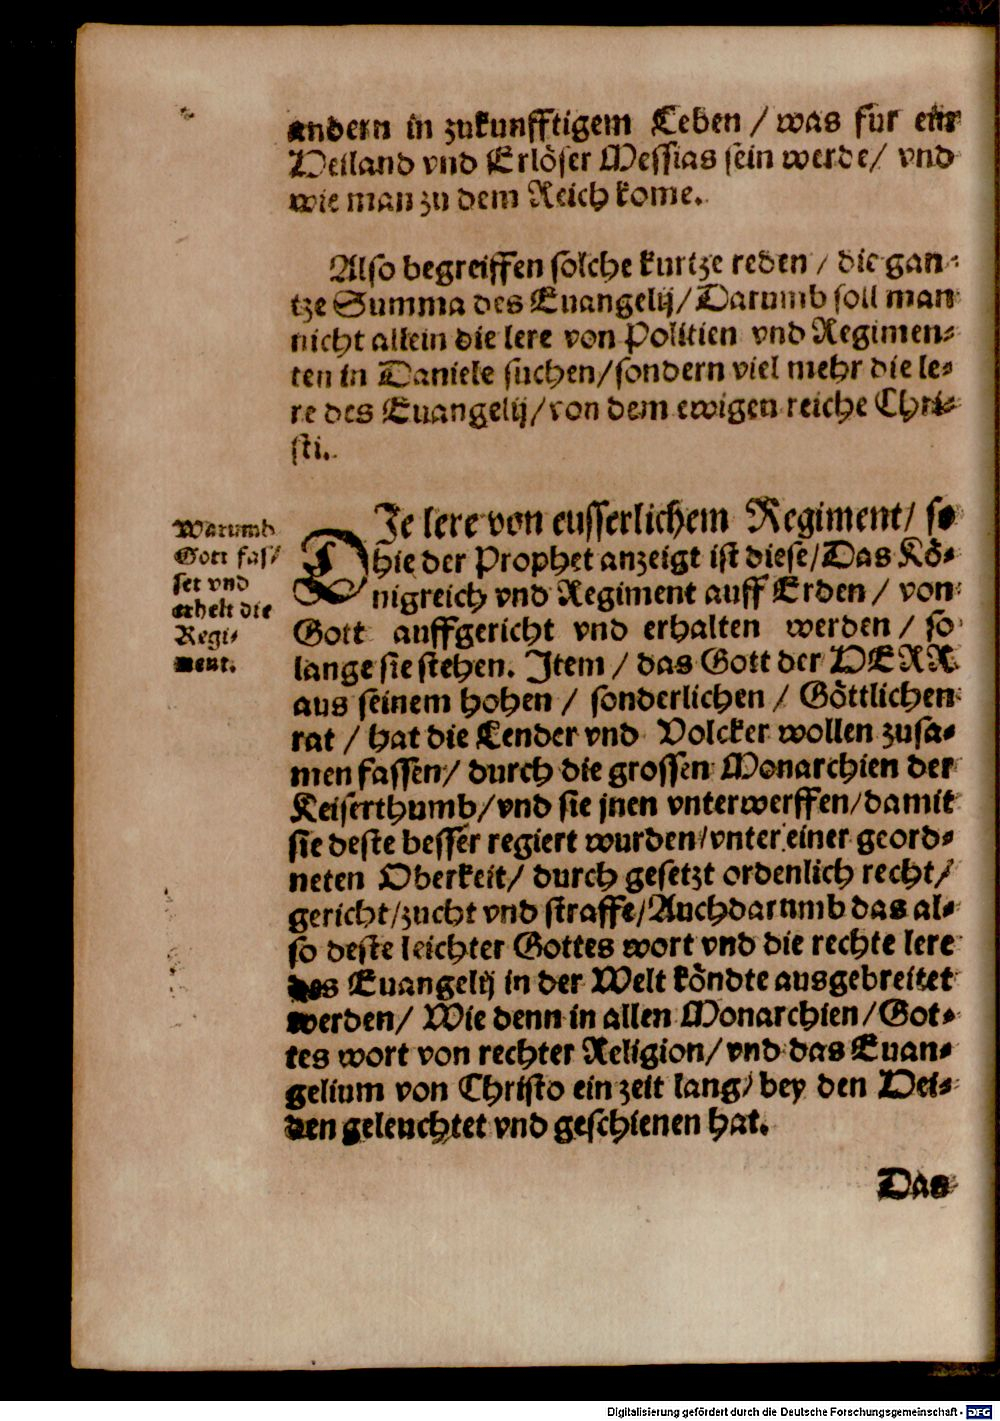 andern in zukunfftigem Leben / was fur ein
Heiland vnd Erlöser Messias sein werde / vnd
wie man zu dem Reich kome.
Also begreiffen solche kurtze reden / die gan-
tze Summa des Euangelij / Darumb soll man
nicht allein die lere von Politien vnd Regimen-
ten in Daniele suchen / sondern viel mehr die le-
re des Euangelij / von dem ewigen reiche Chri-
sti.
Warumb
Gott fas/
set vnd
erhelt die
Regi-
ment.
DIe lere von eusserlichem Regiment / so
hie der Prophet anzeigt ist diese / Das Kö-
nigreich vnd Regiment auff Erden / von
Gott auffgericht vnd erhalten werden / so
lange sie stehen. Item / das Gott der HERR
aus seinem hohen / sonderlichen / Göttlichen
rat / hat die Lender vnd Volcker wollen zusa-
men fassen / durch die grossen Monarchien der
Keiserthumb / vnd sie jnen vnterwerffen / damit
sie deste besser regiert wurden / vnter einer geord-
neten Oberkeit / durch gesetzt ordenlich recht /
gericht / zucht vnd straffe / Auch darumb das al-
so deste leichter Gottes wort vnd die rechte lere
des Euangelij in der Welt köndte ausgebreitet
werden / Wie denn in allen Monarchien / Got-
tes wort von rechter Religion / vnd das Euan-
gelium von Christo ein zeit lang / bey den Hei-
den geleuchtet vnd geschienen hat.
Das
Digitalisierung gefördert durch die Deutsche Forschungsgemeinschaft - DFG